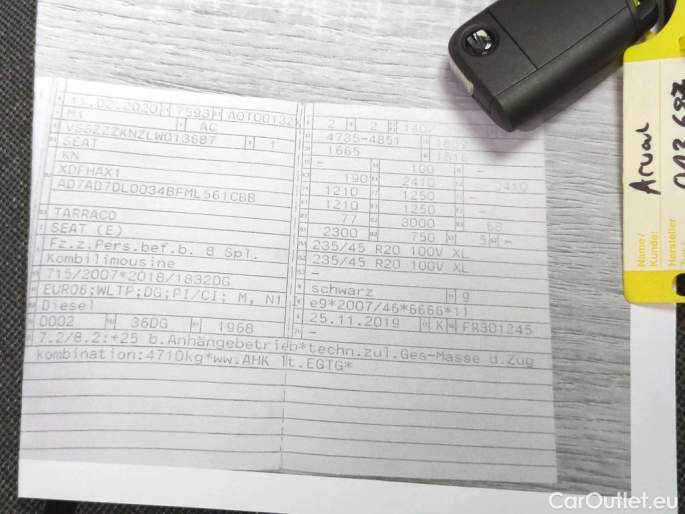 11.02.2020 7593 AOT00132
M1 AC
VSSZZZKNZLW013687 1
SEAT
KN
XDFHAX1
AD7AD7DL0034BFML561CBB
TARRACO
SEAT (E)
Fz.z.Pers.bef.b. 8 Spl.
Kombilimousine
715/2007*2018/1832DG
EURO6;WLTP;DG;PI/CI; M, N1
Diesel
0002 36DG 1968
2 2
4735-4851
1665 1816
- 100 -
190 2410 2410
1210 1250 -
1210 1250 -
77 3000 68
2300 750 5 -
235/45 R20 100V XL
235/45 R20 100V XL
-
schwarz 9
e9*2007/46*6666*11
25.11.2019 K FR301245
-
7.2/8.2:+25 b.Anhängebetrieb*techn.zul.Ges-Masse d.Zug
kombination:4710kg*ww.AHK lt.EGTG*
Name/
Kunde: Arval
Hersteller
013687
CarOutlet.eu